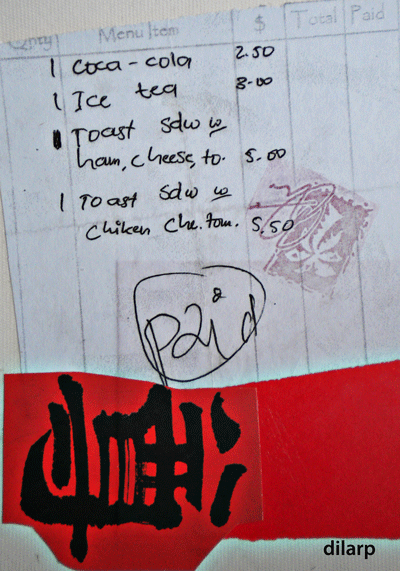 Qnty Menu Item $ Total Paid
1 Coca-cola 2.50
1 Ice tea 3.00
1 Toast sdw w
ham, cheese, to. 5.00
1 Toast sdw w
chiken che. tom. 5.50
Paid
dilarp